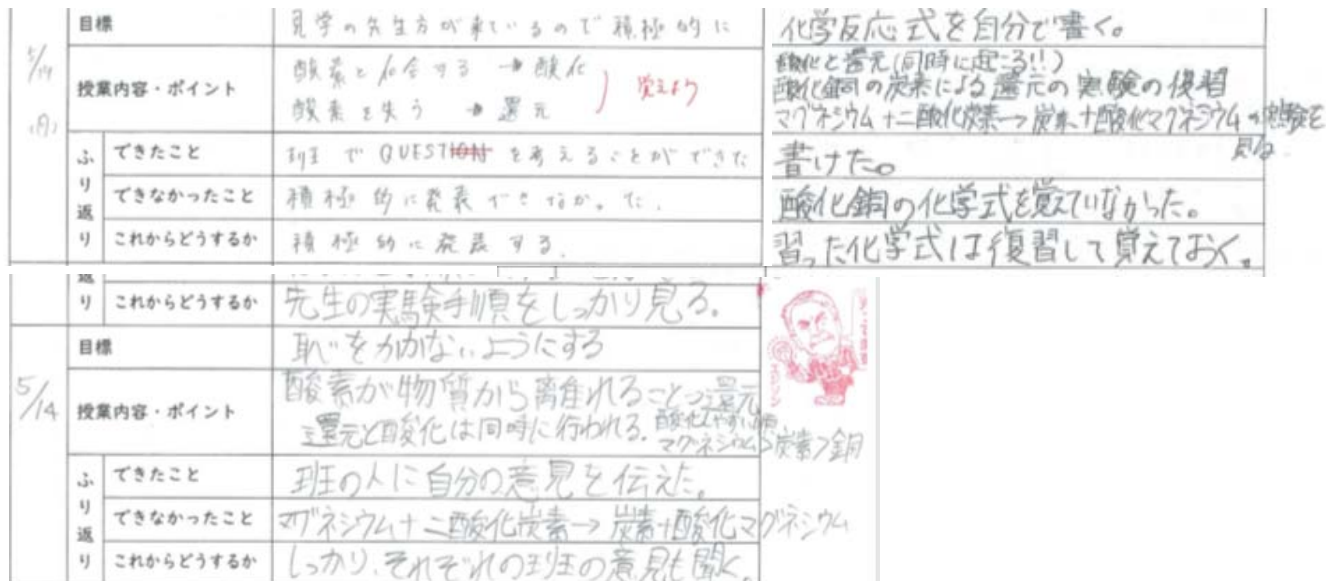 5/14
(月)
目標
見学の先生方が来ているので積極的に
授業内容・ポイント
酸素と化合する → 酸化
酸素を失う → 還元
覚えよう
ふり返り
できたこと
班でQUESTIONを考えることができた
できなかったこと
積極的に発表できなかった.
これからどうするか
積極的に発表する.
化学反応式を自分で書く。
酸化と還元(同時に起こる!!)
酸化銅の炭素による還元の実験の復習
マグネシウム+二酸化炭素→炭素+酸化マグネシウムの実験を
書けた。
酸化銅の化学式を覚えていなかった。
習った化学式は復習して覚えておく。
返り
これからどうするか
先生の実験手順をしっかり見る。
5/14
目標
恥をかかないようにする
授業内容・ポイント
酸素が物質から離れること→還元
還元と酸化は同時に行われる.
マグネシウム>炭素>銅
ふり返り
できたこと
班の人に自分の意見を伝えた。
できなかったこと
マグネシウム+二酸化炭素→炭素+酸化マグネシウム
これからどうするか
しっかり、それぞれの班の意見も聞く。